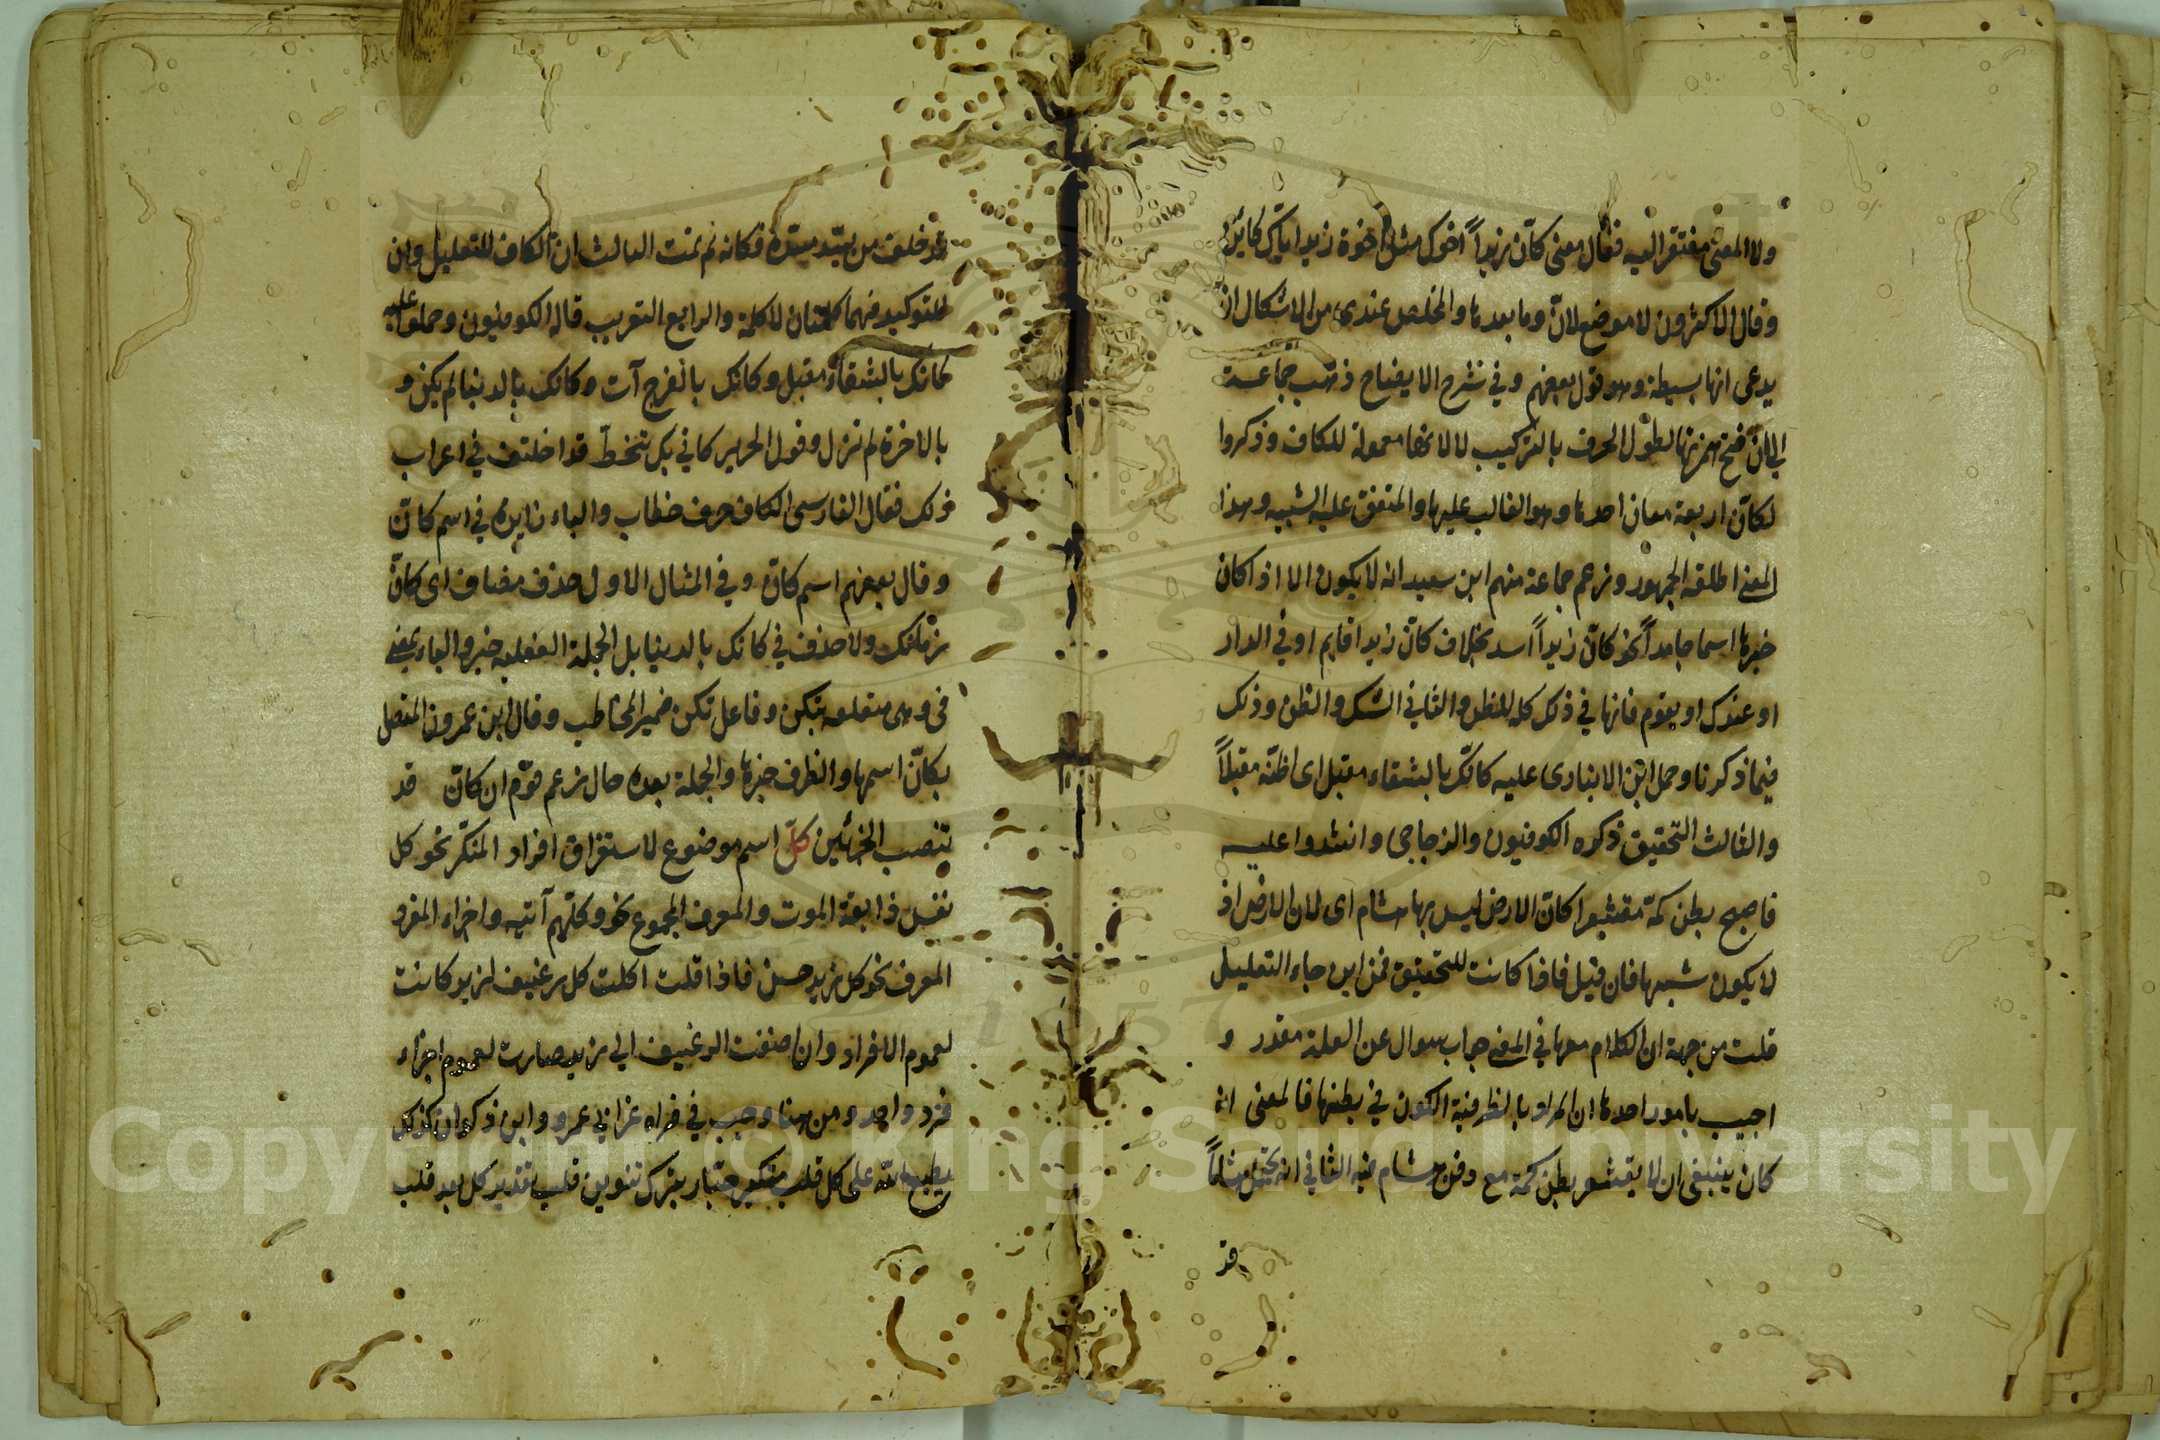 ولا المعنى مفتقر اليه فقال معنى كانّ زيداً اخوك مثل اخوة زيد اياك كائن
وقال الاكثرون لا موضع لانّ وما بعدها والمخلص عندى من الاشكال ان
يدعى انها بسيطة وهو قول بعضهم وفي شرح الايضاح ذهب جماعة
الى ان فتح همزتها لطول الحرف بالتركيب لا لانها معمولة للكاف وذكروا
لكانّ اربعة معان احدها وهو الغالب عليها والمتفق عليه التشبيه وهذا
المعنى اطلقه الجمهور وزعم جماعة منهم ابن سعيد انه لا يكون الا اذا كان
خبرها اسما جامداً نحو كانّ زيداً اسد بخلاف كانّ زيدا قايم او في الدار
او عندك او يقوم فانها في ذلك كله للظن والثاني الشك والظن وذلك
فيما ذكرنا وحمل ابن الانبارى عليه كانّك بالشتاء مقبل اى اظنّه مقبلاً
والثالث التحقيق ذكره الكوفيون والزجاجى وانشدوا عليه
فاصبح بطن مكّة مقشعرا كانّ الارض ليس بها هشام اى لان الارض اذ
لا يكون تشبيها فان قيل فاذا كانت للتحقيق فمن اين جاء التعليل
قلت من جهة ان الكلام معها في المعنى جواب سوال عن العلة مقدر و
اجيب بامور احدها ان المراد بالظرفية الكون في بطنها فالمعنى انه
كان ينبغى ان لا يقشعر بطن مكة مع دفن هشام فيه الثاني انه يحتمل هشاماً
قد
قد خلف من يسد مسدّه فكانه لم يمت الثالث ان الكاف للتعليل وان
للتوكيد فهما كلمتان لا كلمة والرابع التقريب قاله الكوفيون وحملوا عليه
كانك بالشتاء مقبل وكانك بالفرج آت وكانك بالدنيا لم تكن و
بالاخرة لم تزل وقول الحريرى كاني بك تنحطّ قد اختلف في اعراب
ذلك فقال الفارسى الكاف حرف خطاب والباء زايدة في اسم كانّ
وقال بعضهم اسم كانّ وفي المثال الاول حذف مضاف اى كانّ
زمانك ولا حذف في كانك بالدنيا بل الجملة الفعلية خبر والباء بمعنى
فى وهى متعلقه بتكن وفاعل تكن ضمير المخاطب وقال ابن عمرون المتصل
بكانّ اسمها والظرف خبرها والجملة بعده حال زعم قوم ان كانّ قد
تنصب الجزئين كلّ اسم موضوع لاستغراق افراد المنكّر نحو كل
نفس ذايقة الموت والمعرف المجموع نحو وكلّهم آتيه واجزاء المفرد
المعرف نحو كل زيد حسن فاذا قلت اكلت كل رغيف لزيد كانت
لعموم الافراد وان اضفت الرغيف الى زيد صارت لعموم اجزاء
فرد واحد ومن هنا وجب في قراءة غير ابي عمرو وابن ذكوان كذلك
يطبع الله على كل قلب متكبر جبّار بترك تنوين قلب تقدير كل بعد قلب